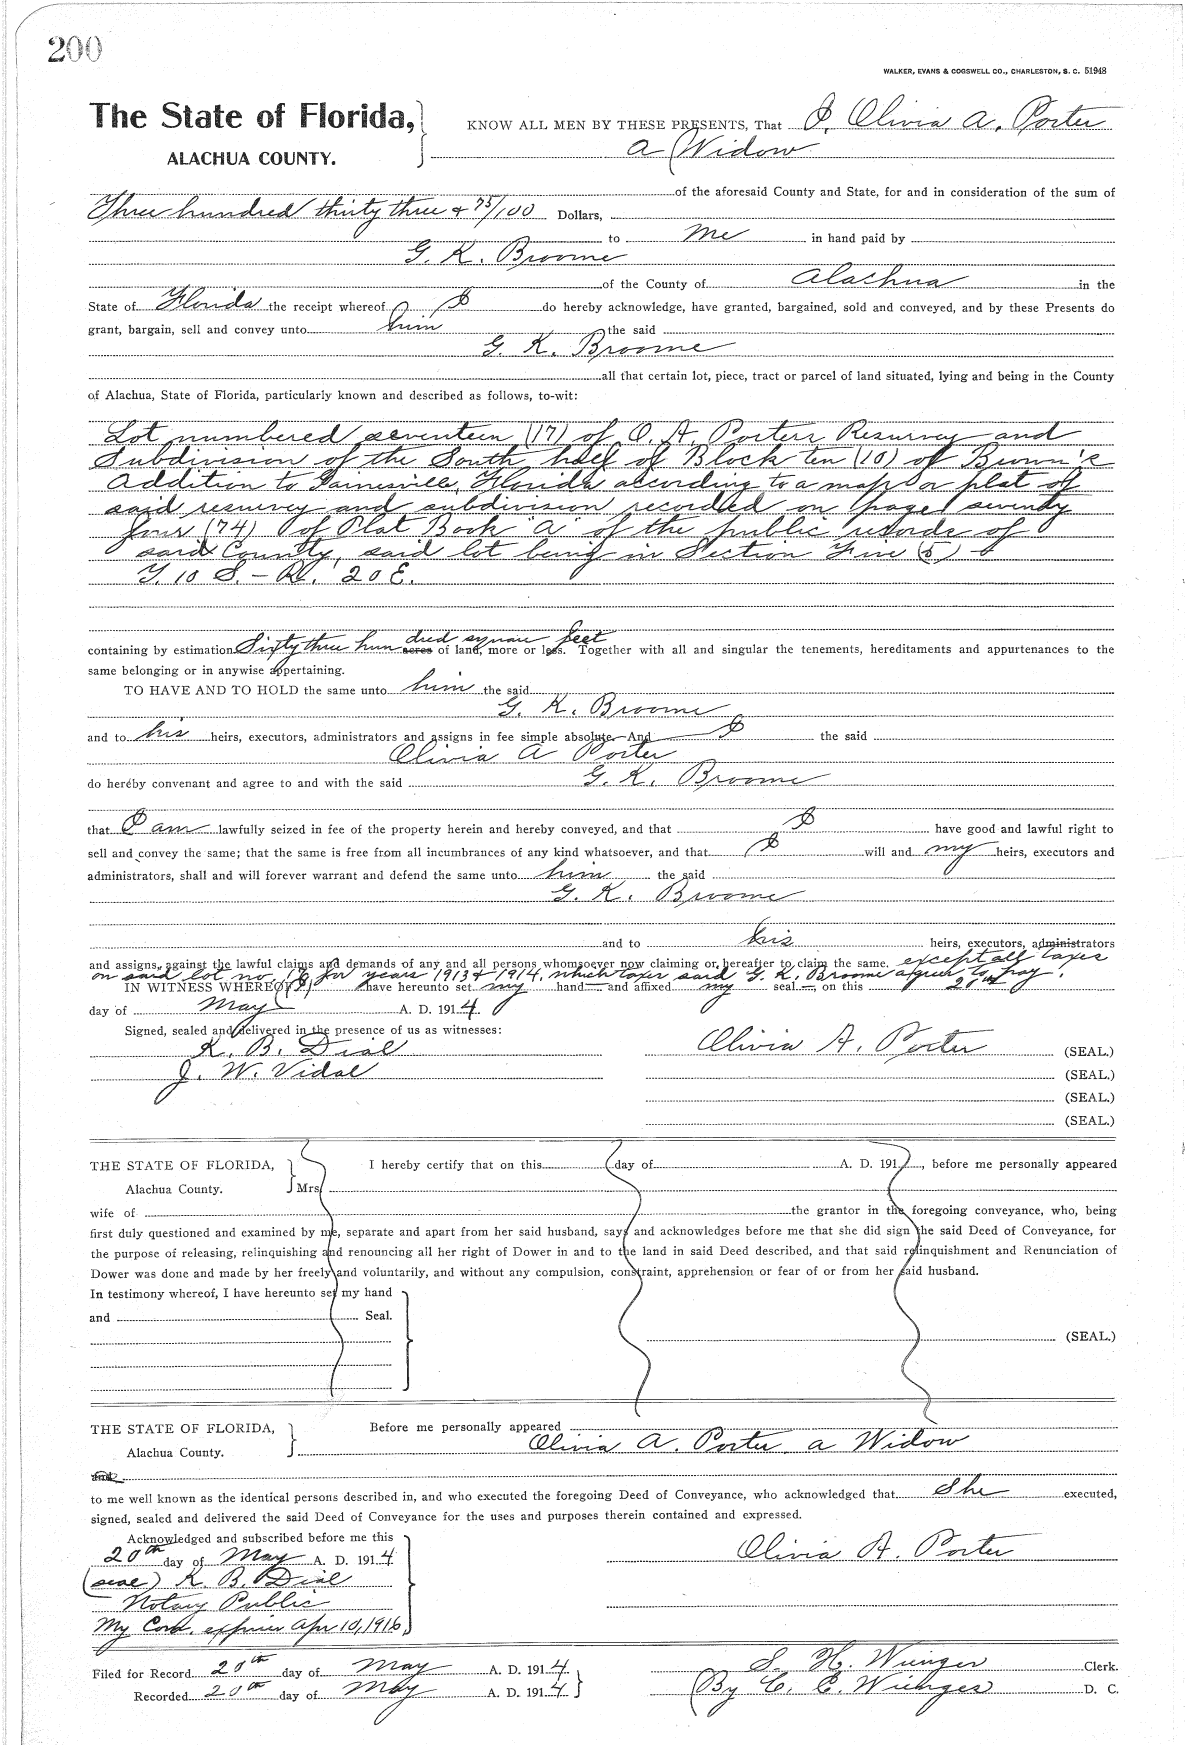 200
WALKER, EVANS & COGSWELL CO., CHARLESTON, S. C. 51948
The State of Florida,
ALACHUA COUNTY.
KNOW ALL MEN BY THESE PRESENTS, That I, Olivia A. Porter
a Widow
of the aforesaid County and State, for and in consideration of the sum of
Three hundred thirty three & 75/100 Dollars,
to me in hand paid by
G. K. Broome
of the County of Alachua in the
State of Florida the receipt whereof I do hereby acknowledge, have granted, bargained, sold and conveyed, and by these Presents do
grant, bargain, sell and convey unto him the said
G. K. Broome
all that certain lot, piece, tract or parcel of land situated, lying and being in the County
of Alachua, State of Florida, particularly known and described as follows, to-wit:
Lot numbered seventeen (17) of O. A. Porters Resurvey and
Subdivision of the South half of Block ten (10) of Brown's
Addition to Gainesville, Florida according to a map or plat of
said resurvey and subdivision recorded on page seventy
four (74) of Plat Book "A" of the public records of
said County, said lot being in Section Five (5)
T. 10 S. - R. 20 E.
containing by estimation Sixty three hundred square feet acres of land, more or less. Together with all and singular the tenements, hereditaments and appurtenances to the
same belonging or in anywise appertaining.
TO HAVE AND TO HOLD the same unto him the said
G. K. Broome
and to his heirs, executors, administrators and assigns in fee simple absolute. And I the said
Olivia A Porter
do hereby convenant and agree to and with the said G. K. Broome
that I am lawfully seized in fee of the property herein and hereby conveyed, and that I have good and lawful right to
sell and convey the same; that the same is free from all incumbrances of any kind whatsoever, and that I will and my heirs, executors and
administrators, shall and will forever warrant and defend the same unto him the said
G. K. Broome
and to his heirs, executors, administrators
and assigns, against the lawful claims and demands of any and all persons whomsoever now claiming or hereafter to claim the same. except all taxes
on said lot no. for years 1913 & 1914, which taxes said G. K. Broome agrees to pay.
IN WITNESS WHEREOF, I have hereunto set my hand and affixed my seal, on this 20th
day of May A. D. 1914
Signed, sealed and delivered in the presence of us as witnesses:
K. B. Dial
J. W. Vidal
Olivia A. Porter (SEAL.)
(SEAL.)
(SEAL.)
(SEAL.)
THE STATE OF FLORIDA,
Alachua County.
I hereby certify that on this day of A. D. 191 , before me personally appeared
Mrs
wife of the grantor in the foregoing conveyance, who, being
first duly questioned and examined by me, separate and apart from her said husband, says and acknowledges before me that she did sign the said Deed of Conveyance, for
the purpose of releasing, relinquishing and renouncing all her right of Dower in and to the land in said Deed described, and that said relinquishment and Renunciation of
Dower was done and made by her freely and voluntarily, and without any compulsion, constraint, apprehension or fear of or from her said husband.
In testimony whereof, I have hereunto set my hand
and Seal.
(SEAL.)
THE STATE OF FLORIDA,
Alachua County.
Before me personally appeared
Olivia A. Porter a Widow
and
to me well known as the identical persons described in, and who executed the foregoing Deed of Conveyance, who acknowledged that She executed,
signed, sealed and delivered the said Deed of Conveyance for the uses and purposes therein contained and expressed.
Acknowledged and subscribed before me this
20th day of May A. D. 1914
(seal) K. B. Dial
Notary Public
My Com. expires Apr 10, 1916
Olivia A. Porter
Filed for Record 20th day of May A. D. 1914
Recorded 20th day of May A. D. 1914
S. H. Wienges Clerk.
By C. E. Wienges D. C.